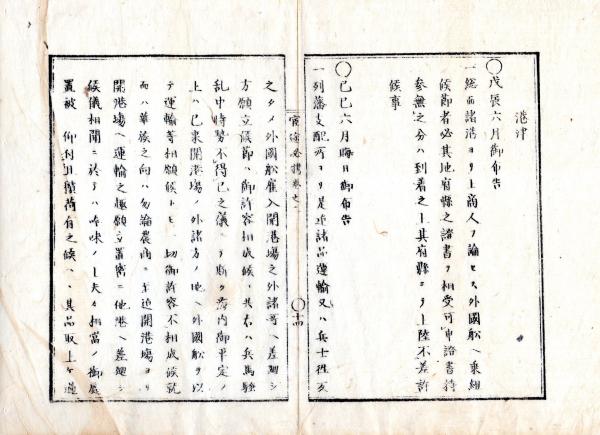 港津
〇戊辰六月御布告
一総而諸港ヨリ上商人ヲ論セス外國舩ヘ乗組
候節者必其地府縣之諸書ヲ相受可申證書持
参無之分ハ到着之上其府縣ヨリ上陸不差許
候事
〇己巳六月晦日御布告
一列藩支配所ヨリ是迄諸品運輸又ハ兵士往亥
官途必携巻之一
〇十四
之タメ外國舩雇入開港場之外諸哥ヘ差廻シ
方願立候節ハ御許容相成候ヘ共右ハ兵馬騒
乱中時勢不得已之儀ニテ斯ク海内御平定ノ
上ハ已来開港場ノ外諸方ノ地ヘ外國舩ヲ以
テ運輸等相願候トモ一切御許容不相成候就
而ハ華族之向ハ勿論農商ニ至迄開港場ヨリ
開港場ヘ運輸之趣願立置窃ニ他港ヘ差廻シ
候儀相聞ニ於テハ吟味ノ上夫々相當ノ御処
置被 仰付且積荷有之候ヘハ其品取上ケ過